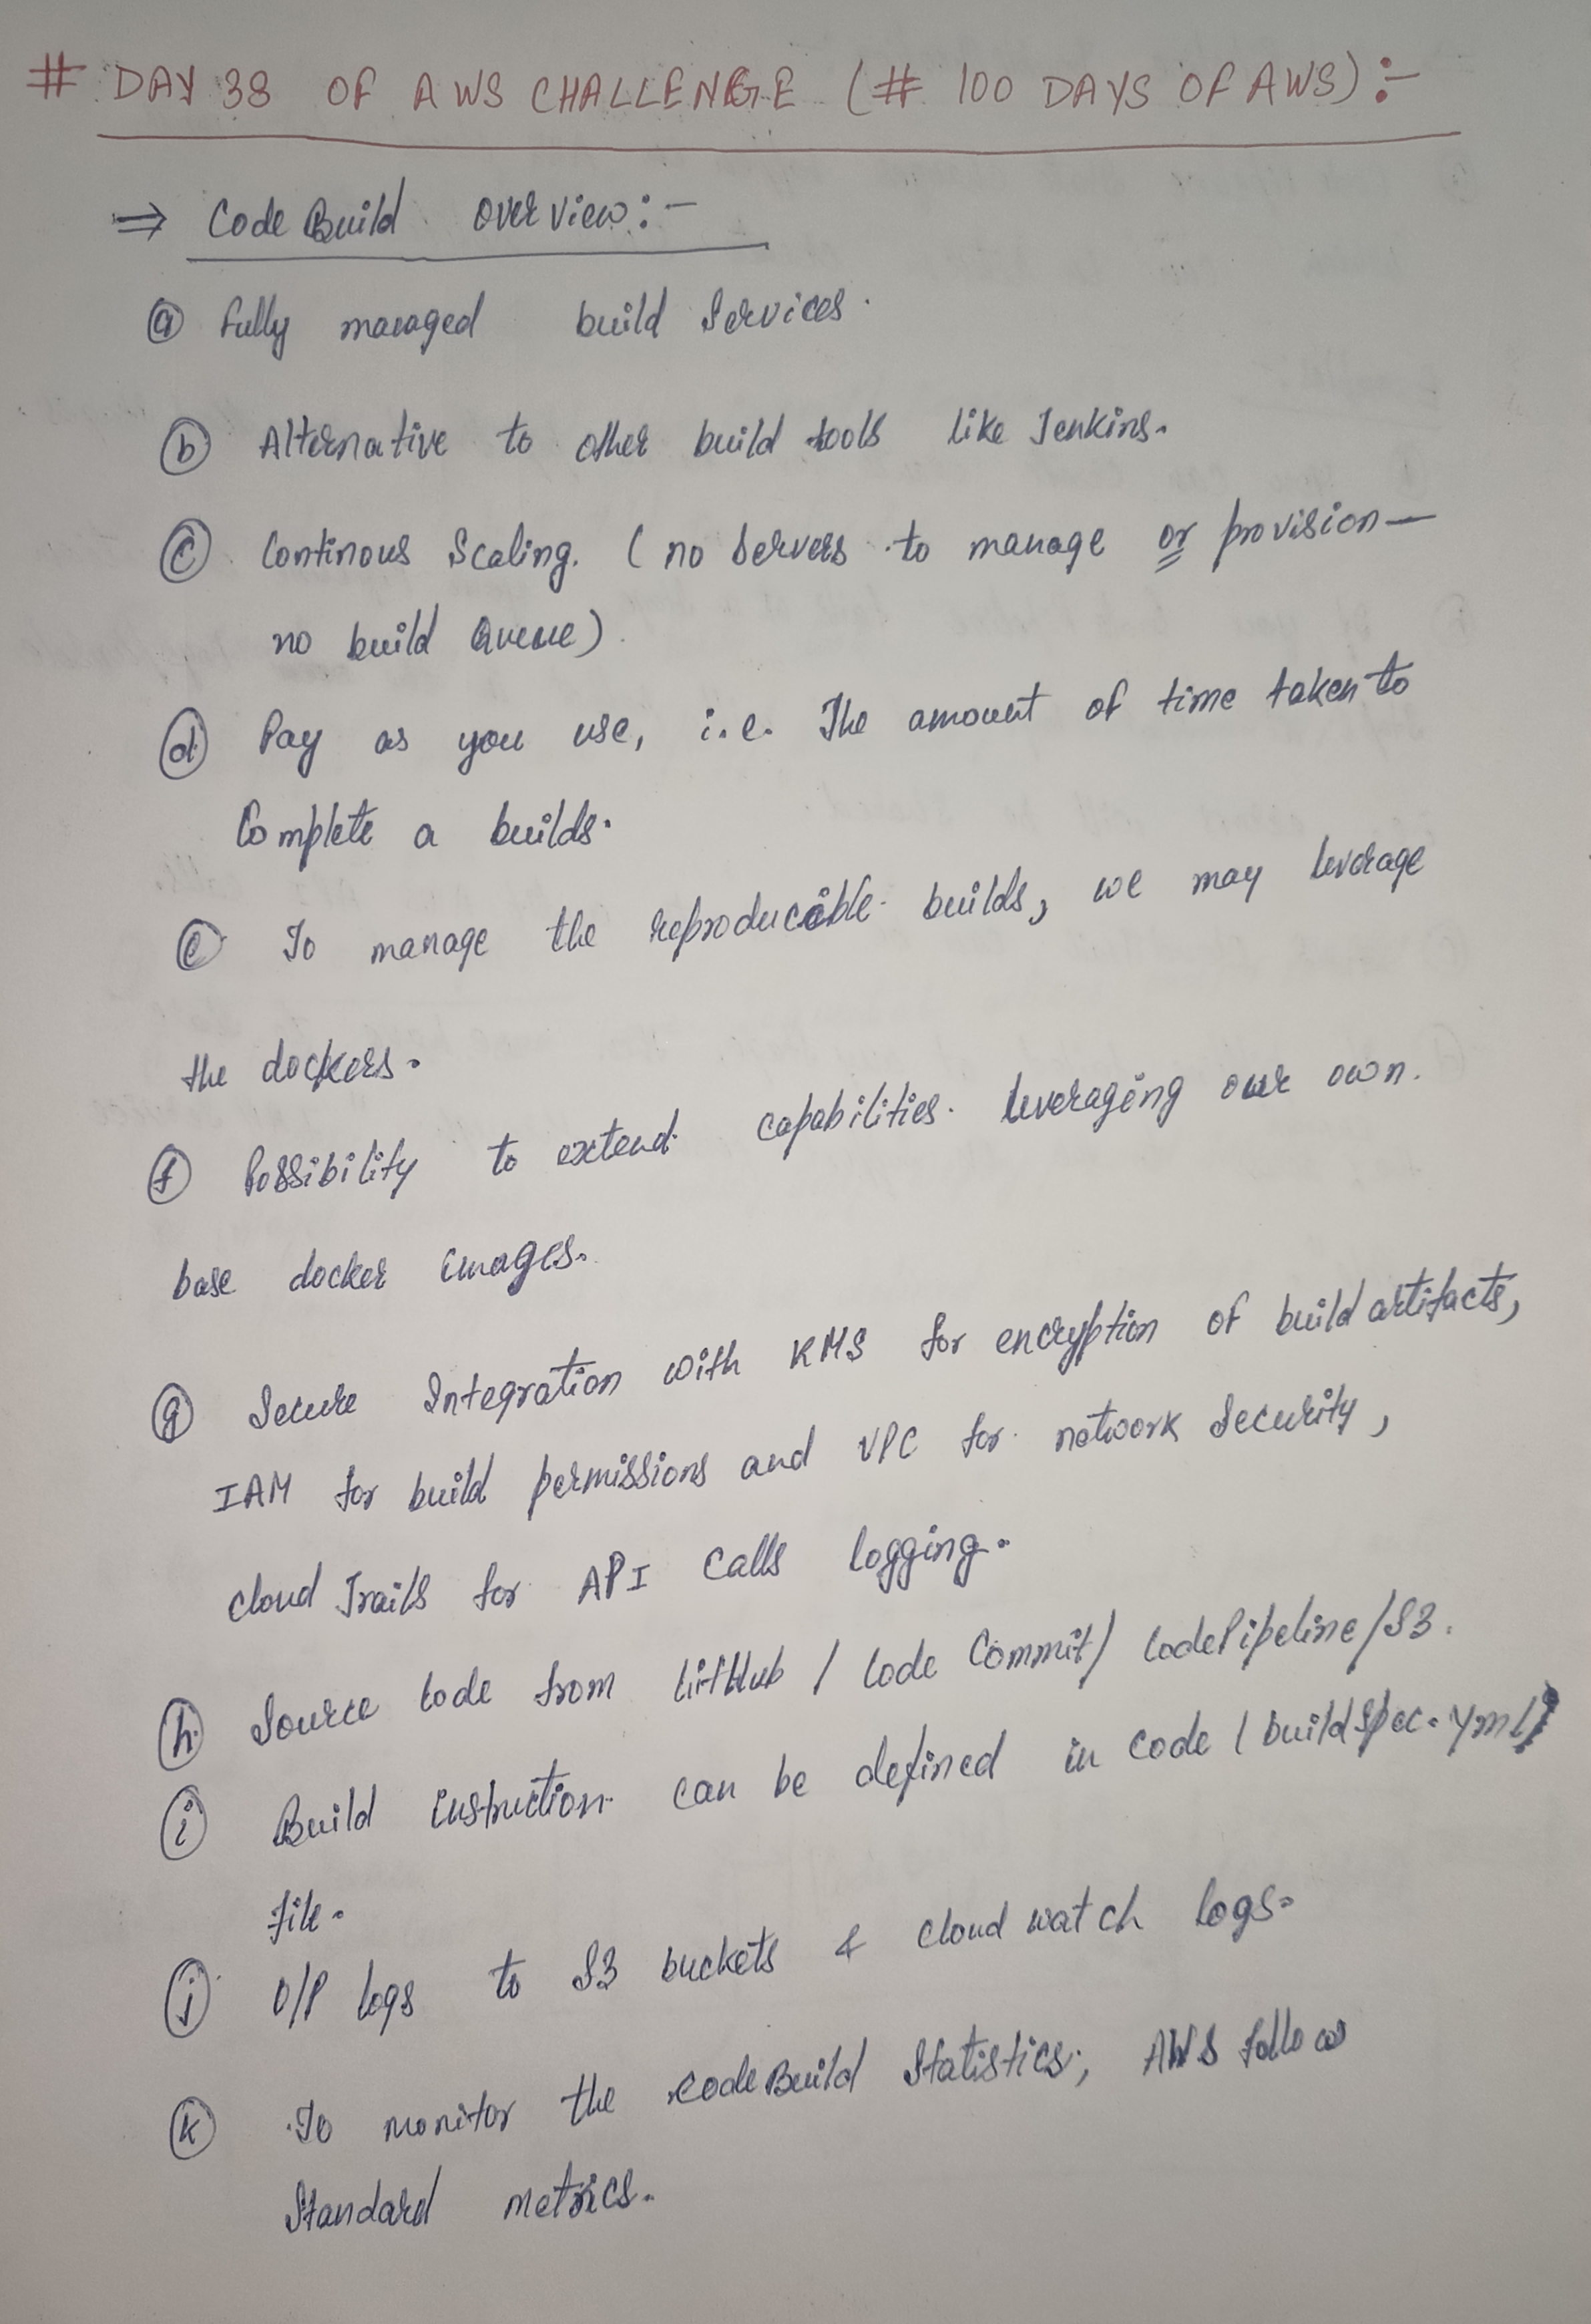 # DAY 38 OF AWS CHALLENGE (# 100 DAYS OF AWS):-
⇒ CodeBuild overview:-
(a) fully managed build Services.
(b) Alternative to other build tools like Jenkins.
(c) Continous Scaling. (no servers to manage or provision—
no build Queue).
(d) Pay as you use, i.e. The amount of time taken to
Complete a builds.
(e) To manage the reproducible builds, we may leverage
the dockers.
(f) Possibility to extend capabilities. leveraging our own.
base docker images.
(g) Secure Integration with KMS for encryption of build artifacts,
IAM for build permissions and VPC for network Security,
cloud Trails for API Calls logging.
(h) Source Code from GitHub / Code Commit / CodePipeline/S3.
(i) Build instruction can be defined in code (buildspec.yml)
file.
(j) O/P logs to S3 buckets & cloud watch logs.
(k) To monitor the codeBuild Statistics, AWS follow
Standard metrics.